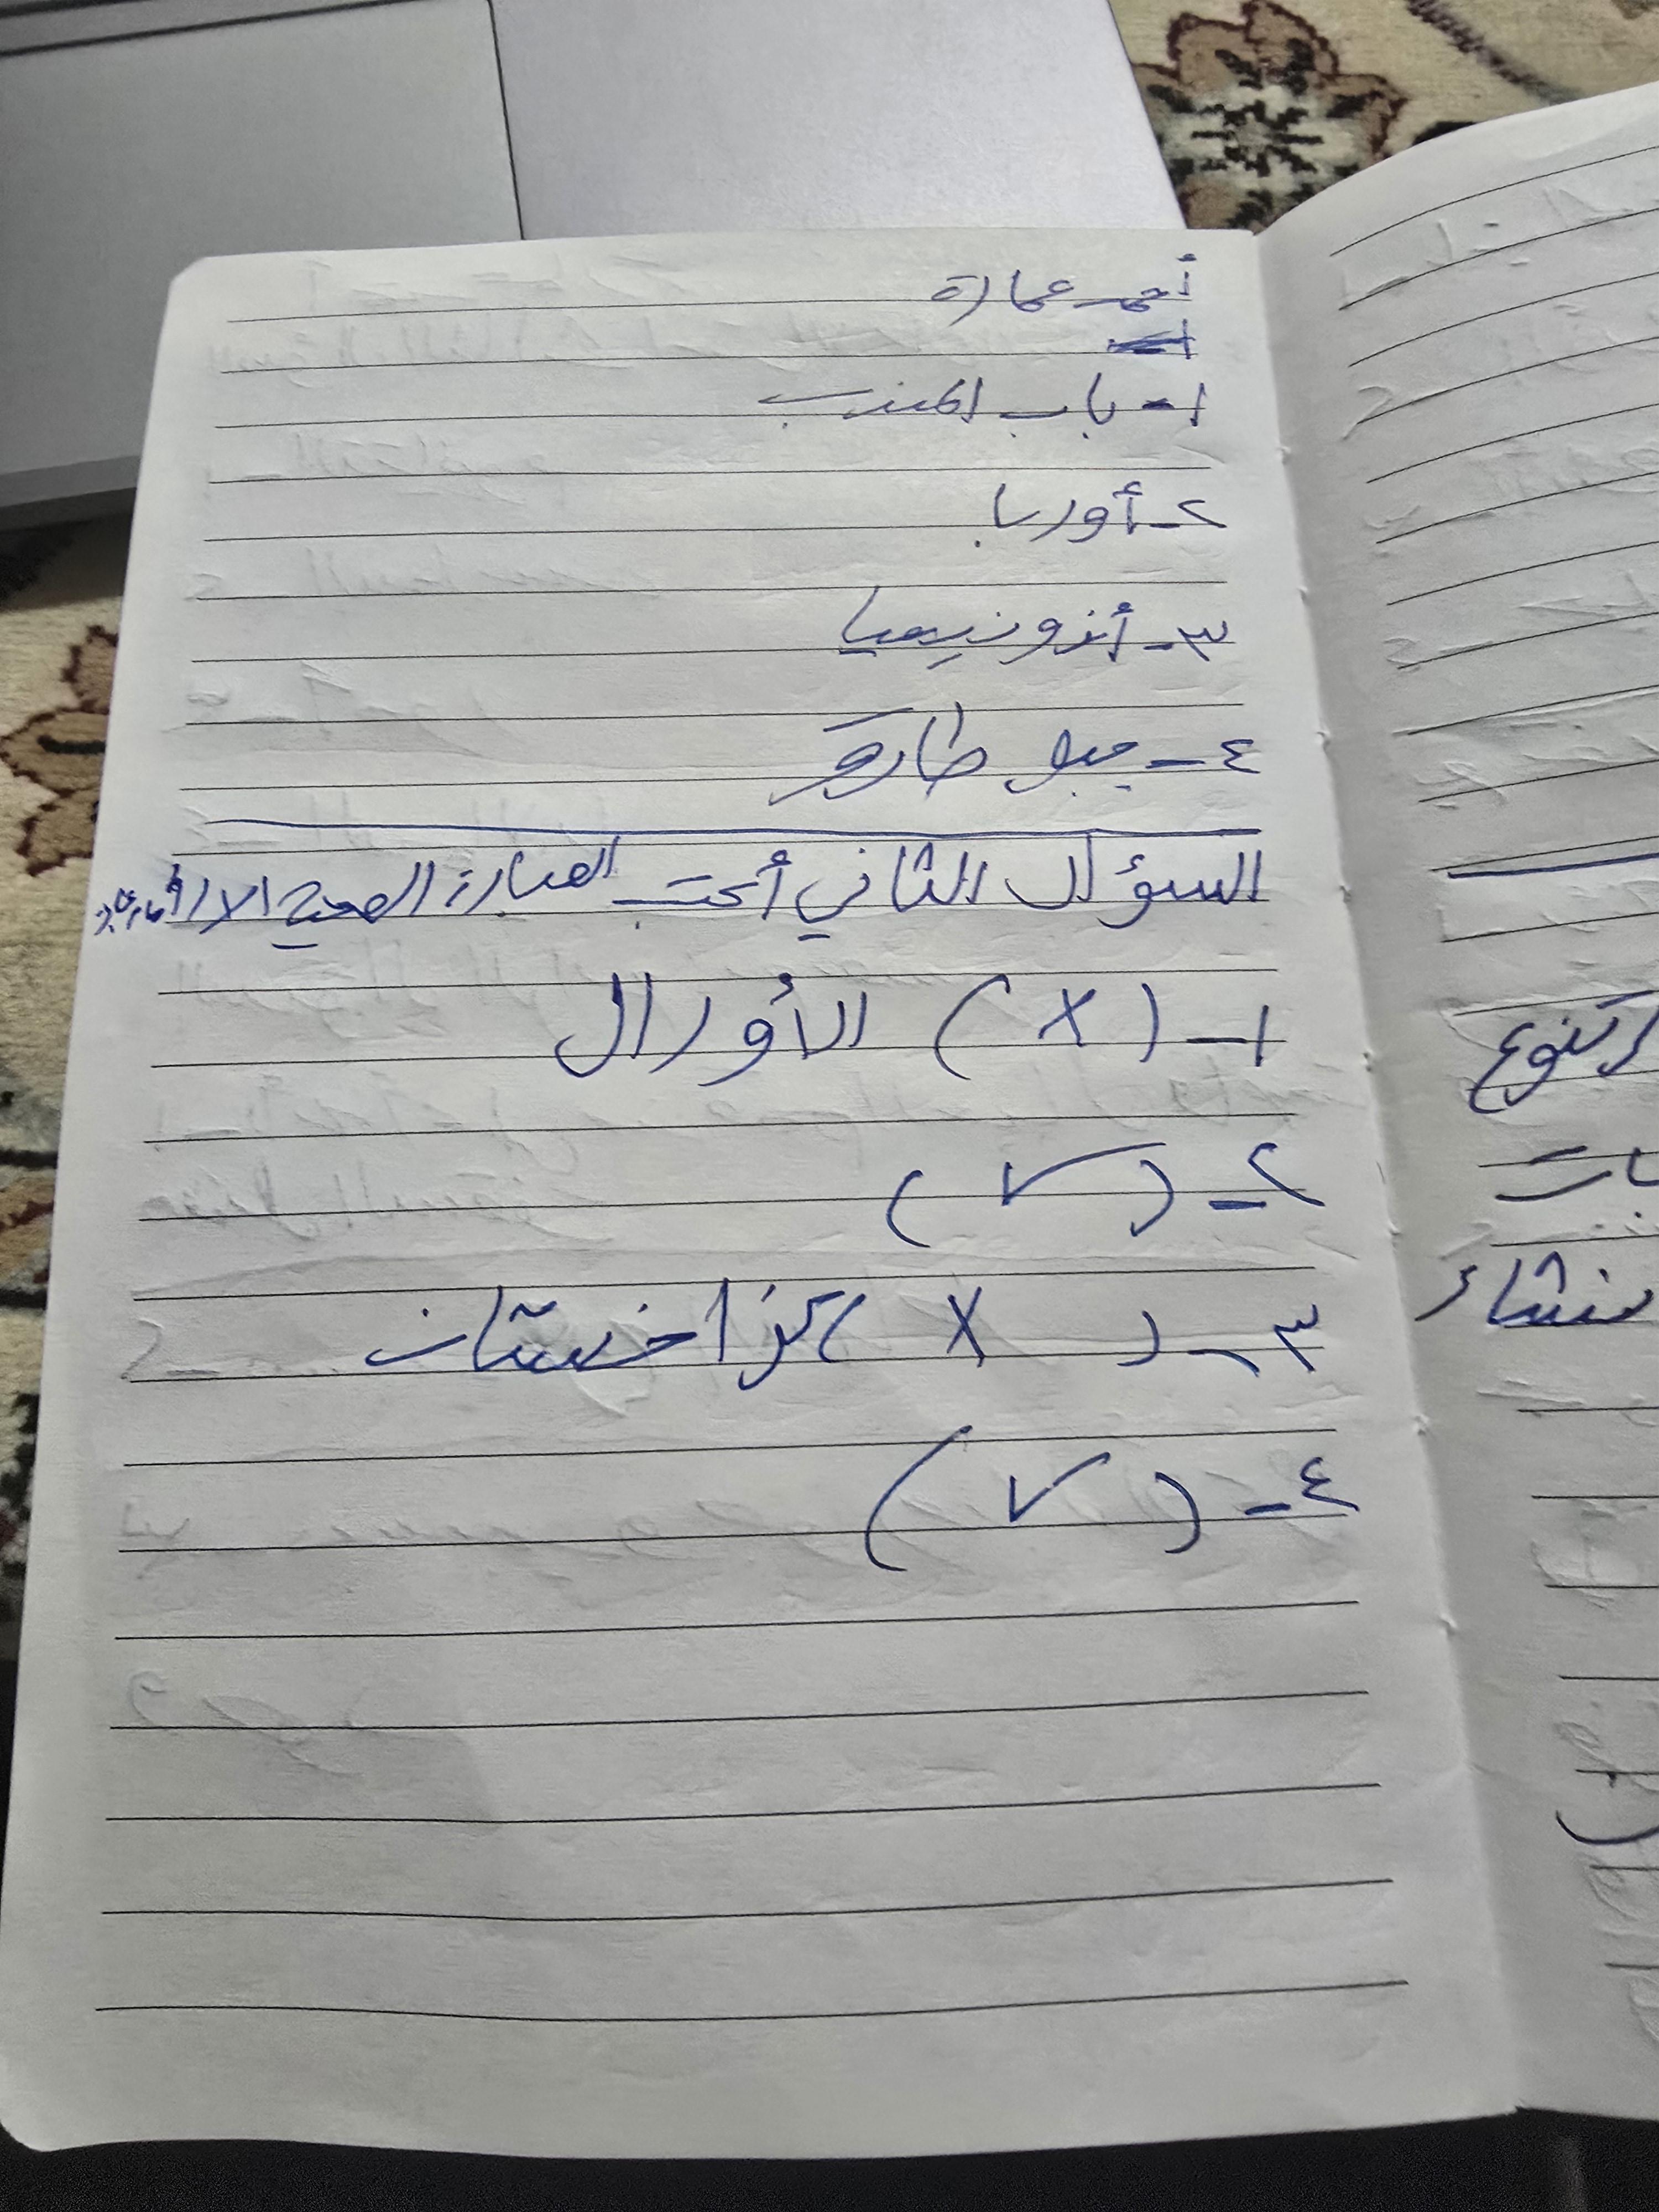 أحمد عمارة
١- باب المندب
٢- أوربا
٣- أندونيسيا
٤- جبل طارق
السؤال الثاني أكتب العبارة الصحيح
١- (X) الأورال
٢- (✓)
٣- (X) كزاخستان
٤- (✓)
تنوع
منشاء